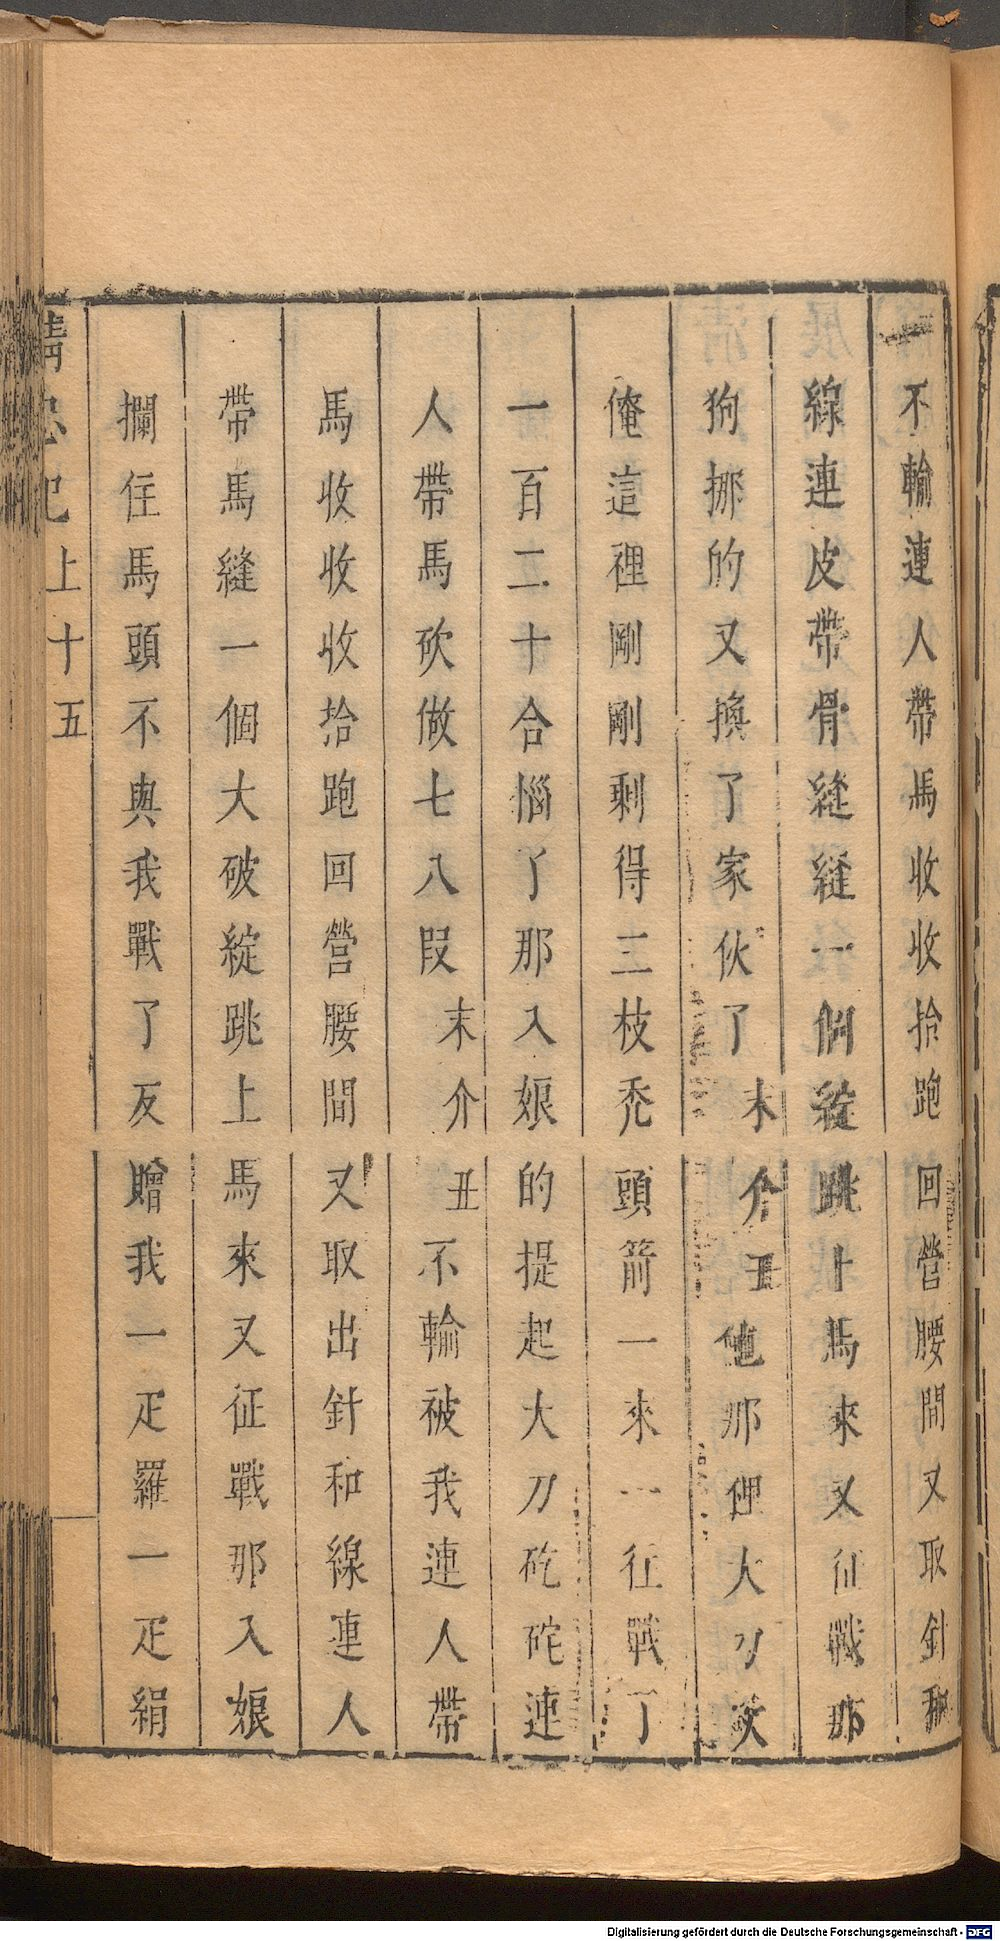 不輸連人帶馬收收拾跑回營腰間又取針和
線連皮帶骨縫縫一個綻跳上馬來又征戰那
狗挪的又換了家伙了末介丑他那俚大刀大
俺這裡剛剛剩得三枝禿頭箭一來一往戰了
一百二十合惱了那入娘的提起大刀砣砣連
人帶馬砍做七八叚末介丑不輸被我連人帶
馬收收收拾跑回營腰間又取出針和線連人
帶馬縫一個大破綻跳上馬來又征戰那入娘
攔住馬頭不與我戰了反贈我一疋羅一疋絹
精忠記上十五
Digitalisierung gefördert durch die Deutsche Forschungsgemeinschaft - DFG